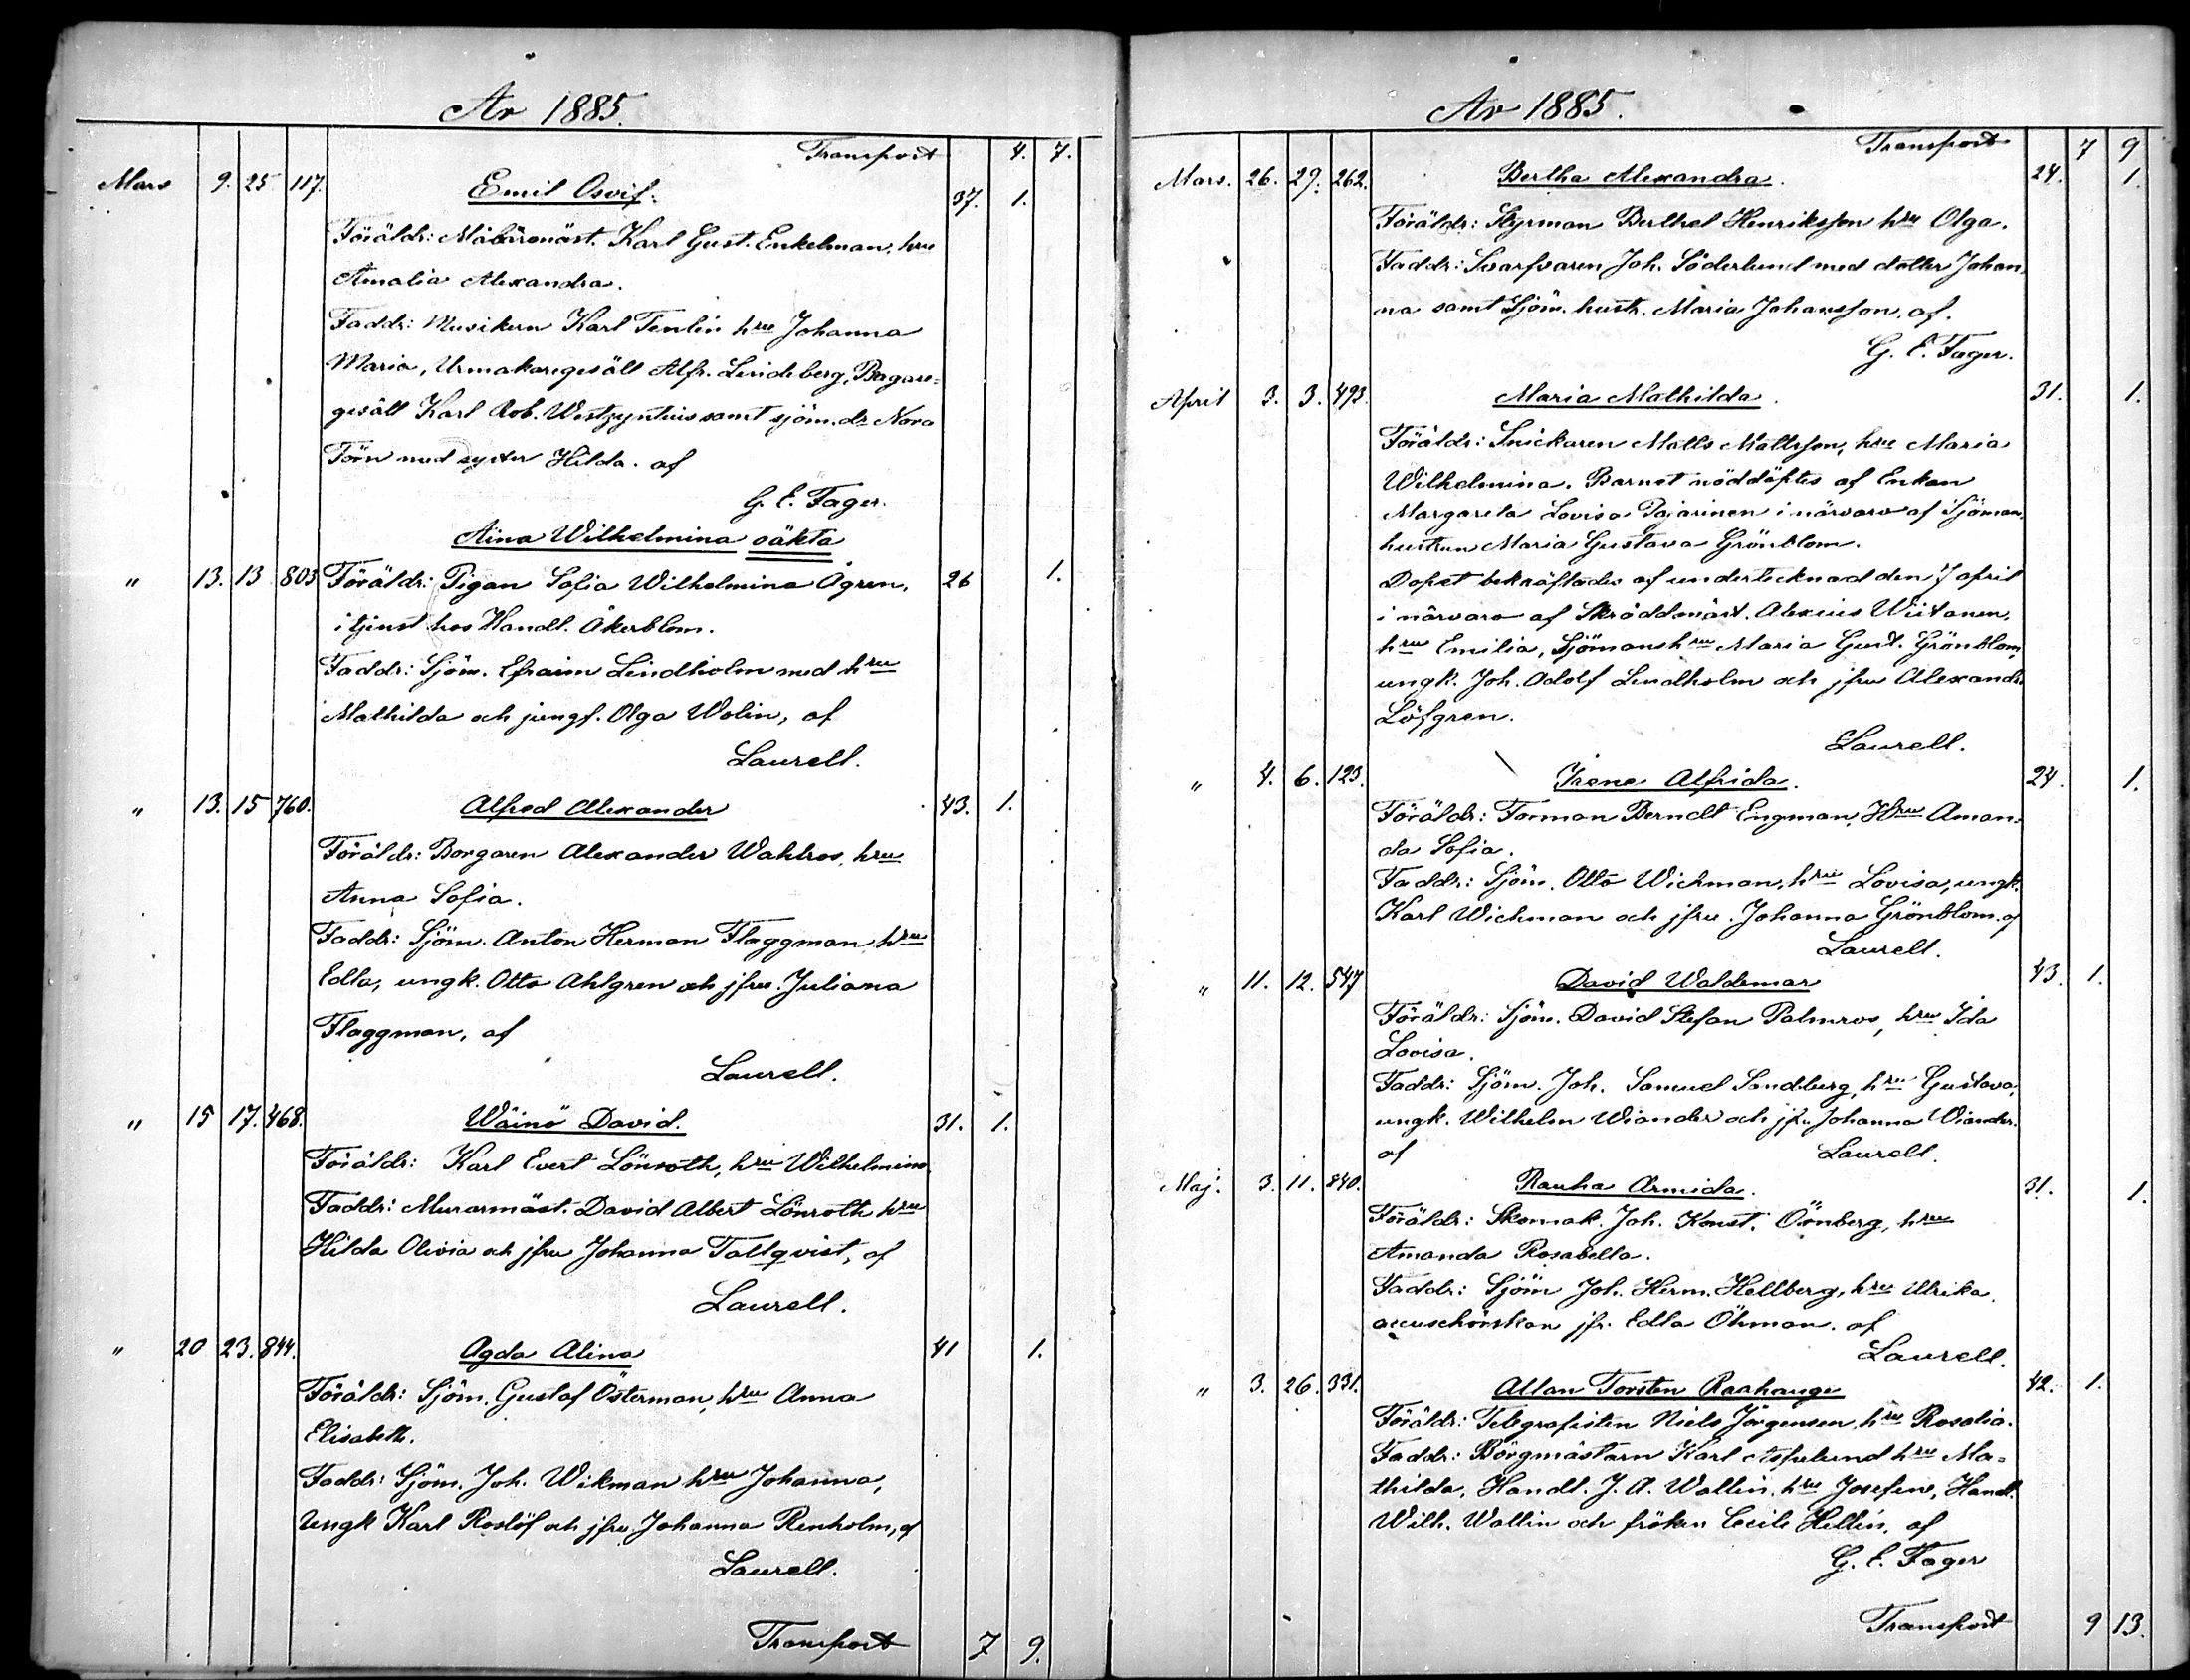 År 1885.
Transport 4. 7.
Mars 9. 25 117. Emil Osvif. 37. 1.
Föräldr: Målaremäst. Karl Gust. Enkelman, hru
Amalia Alexandra.
Faddr: Musikern Karl Tenlin hru Johanna
Maria, Urmakaregesäll Alfr. Lindeberg, Bagare=
gesäll Karl Rob. Westzyntius samt sjöm. dr Nora
Törn med syster Hilda. af
G. E. Fager.
Aina Wilhelmina oäkta
" 13. 13 803 Föräldr: Pigan Sofia Wilhelmina Ågren, 26 1.
i tjenst hos Handl. Åkerblom.
Faddr: Sjöm. Efraim Lindholm med hru
Mathilda och jungf. Olga Wolin, af
Laurell.
" 13. 15 760. Alfred Alexander 43. 1.
Föräldr: Borgaren Alexander Wahlros, hru
Anna Sofia.
Faddr: Sjöm. Anton Herman Flaggman hru
Edla, ungk. Otto Ahlgren och jfru. Juliana
Flaggman, af
Laurell.
" 15 17. 468. Wäinö David. 31. 1.
Föräldr: Karl Evert Lönroth, hru Wilhelmina
Faddr: Murarmäst. David Albert Lönroth hru
Hilda Olivia och jfru Johanna Tallqvist, af
Laurell.
" 20 23. 844. Agda Alina 41 1.
Föräldr: Sjöm. Gustaf Österman, hru Anna
Elisabeth.
Faddr: Sjöm. Joh. Wikman hru Johanna,
Ungk Karl Roslöf och jfru Johanna Renholm, af
Laurell.
Transport 7 9.
År 1885.
Transport 7 9
Mars. 26. 29. 262. Bertha Alexandra. 24. 1.
Föräldr: Styrman Berthel Henriksson hru Olga.
Faddr: Svarfvaren Joh. Söderlund med dotter Johan
na samt Sjöm. hustr. Maria Johansson. af.
G. E. Fager.
April 3. 3. 493. Maria Mathilda. 31. 1.
Föräldr: Snickaren Matts Mattsson, hru Maria
Wilhelmina. Barnet nöddöptes af Enkan
Margareta Lovisa Pajarinen i närvaro af Sjöman.
hustrun Maria Gustava Grönblom.
Dopet bekräftades af undertecknad den 7 april
i närvaro af Skräddmäst. Alexius Wiitanen,
hru Emilia, Sjömanshru Maria Gust. Grönblom,
ungk. Joh. Adolf Lindholm och jfru Alexandr.
Löfgren.
Laurell.
" 4. 6. 123. Irene Alfrida. 24. 1.
Föräldr: Forman Berndt Engman, Hru Aman=
da Sofia.
Faddr: Sjöm. Otto Wichman, hru Lovisa, ungk.
Karl Wichman och jfru. Johanna Grönblom. af
Laurell.
" 11. 12. 547 David Waldemar 43. 1.
Föräldr: Sjöm. David Stefan Palmros, hru Ida
Lovisa.
Faddr: Sjöm. Joh. Samuel Sandberg, hru Gustava,
ungk. Wilhelm Wiander och jfr. Johanna Wiander.
af Laurell.
Maj. 3. 11. 840. Rauha Armida. 31. 1.
Föräldr: Skomak. Joh. Konst. Öönberg, hru
Amanda Rosabella.
Faddr: Sjöm Joh. Herm. Hellberg, hru Ulrika
accuschörskan jfr. Edla Öhman. af
Laurell.
" 3. 26. 331. Allan Torsten Raahauge 42. 1.
Föräldr: Telegrafisten Niels Jörgensen, hru Rosalia.
Faddr: Börgmästarn Karl Asplund hru Ma=
thilda, Handl. J. A. Wallin, hru Josefine, Handl.
Wilh. Wallin och fröken Cecile Hellén, af
G. E. Fager
Transport 9 13.